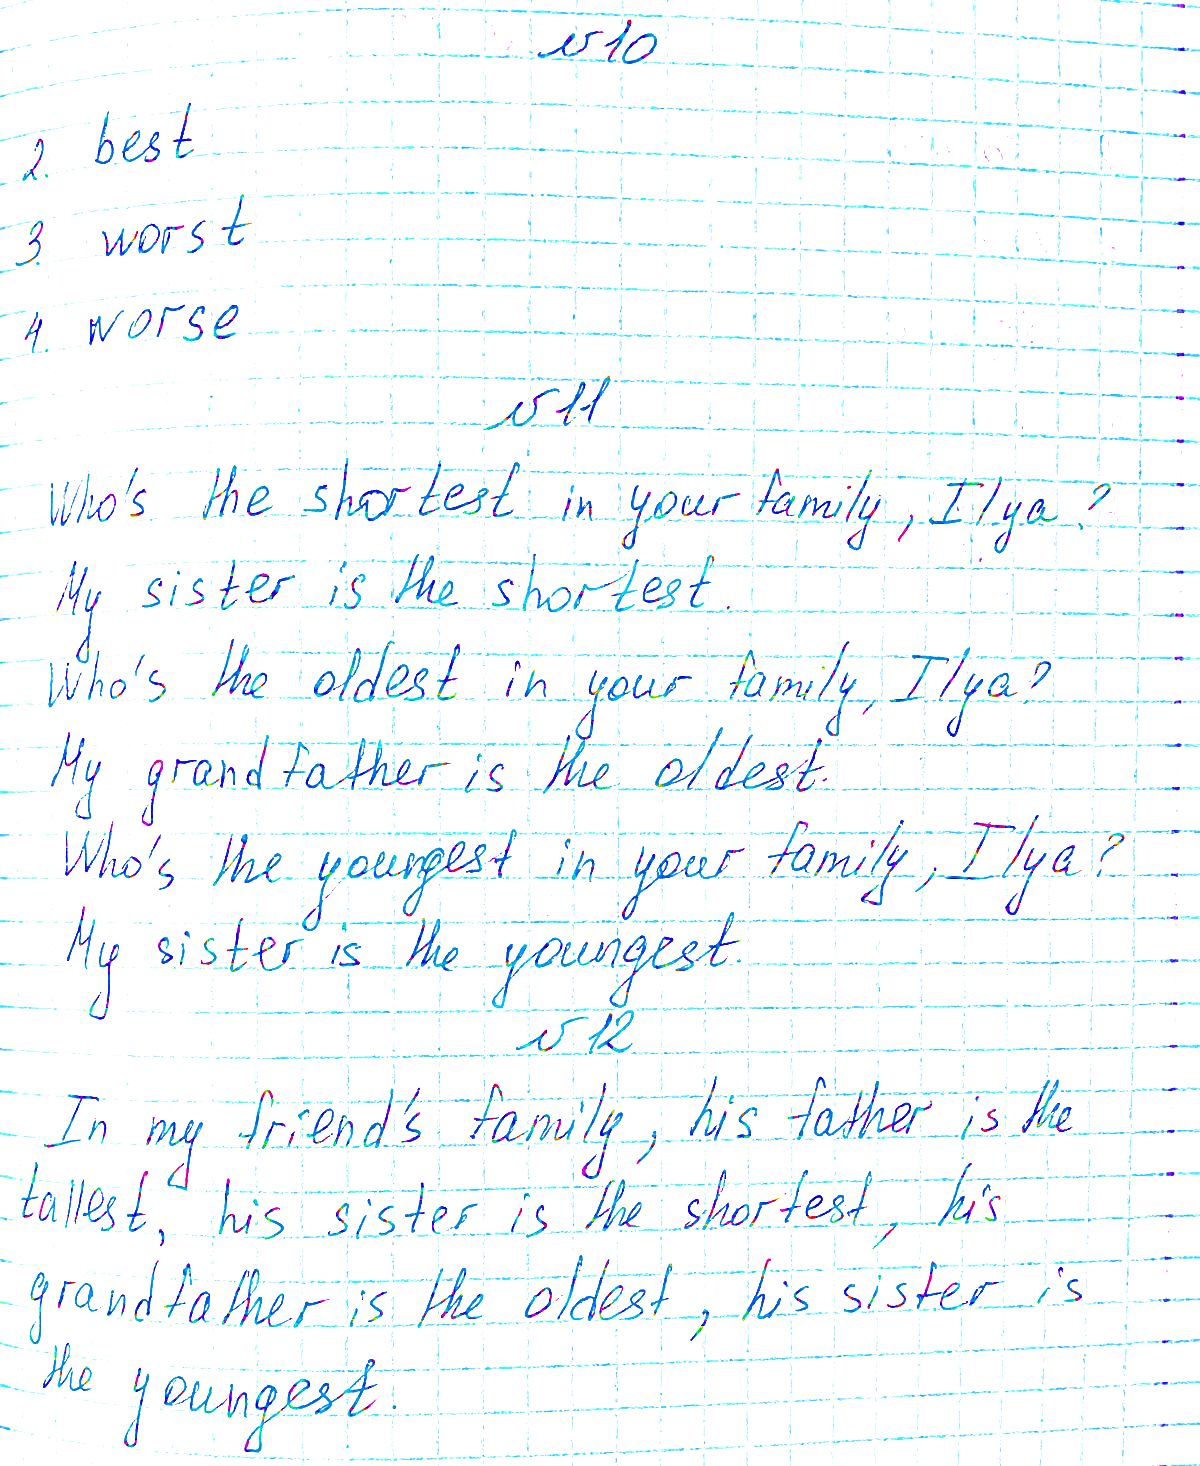 №10
2. best
3. worst
4. worse
№11
Who's the shortest in your family, Ilya?
My sister is the shortest.
Who's the oldest in your family, Ilya?
My grandfather is the oldest.
Who's the youngest in your family, Ilya?
My sister is the youngest.
№12
In my friend's family, his father is the
tallest, his sister is the shortest, his
grandfather is the oldest, his sister is
the youngest.